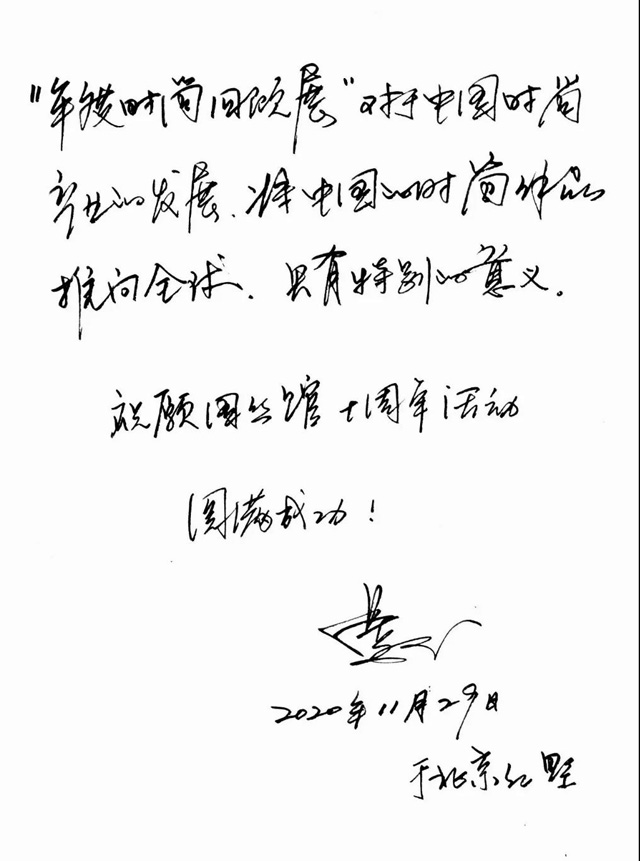 “年度时尚回顾展”对于中国时尚
产业的发展、将中国的时尚作品
推向全球、具有特别的意义。
祝愿国丝馆十周年活动
圆满成功！
2020年11月29日
于北京